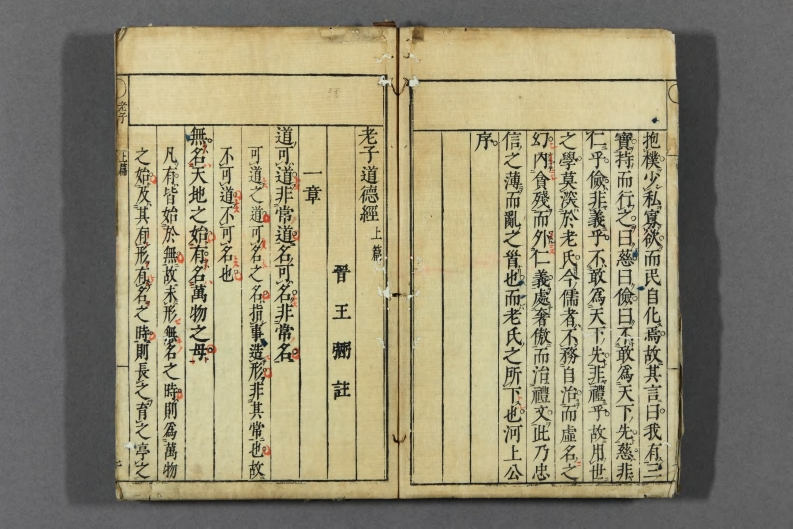 抱樸少私寡欲而民自化焉故其言曰我有三
寶持而行之曰慈曰儉曰不敢為天下先慈非
仁乎儉非義乎不敢為天下先非禮乎故用世
之學莫深於老氏今儒者不務自治而虛名之
幻內貪殘而外仁義處奢傲而治禮文此乃忠
信之薄而亂之首也而老氏之所下也河上公
序
老子道德經上篇
晉王弼註
一章
道可道非常道名可名非常名
可道之道可名之名指事造形非其常也故
不可道不可名也
無名天地之始有名萬物之母
凡有皆始於無故未形無名之時則為萬物
之始及其有形有名之時則長之育之亭之
老子
上篇